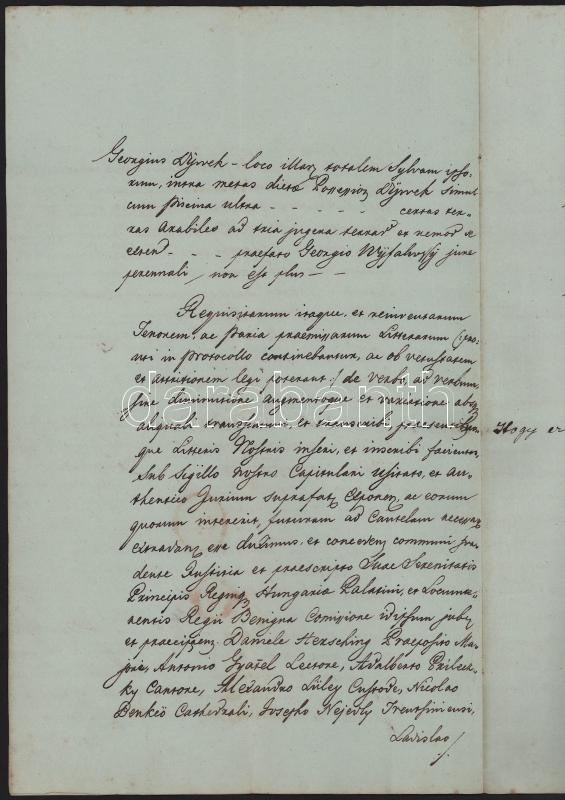 Georgius Dÿvek – loco illarz totalem Sylvam ipso-
rum, intra metas dictæ Possessionz Dÿvek simul
cum piscina ultra - - - - - certas ter-
ras arabiles ad tria jugera terrarz et nemorz se
extend - - - praefato Georgio Wÿfalussÿ jure
perennali, non est plus – –
Requisitarum itaque, et reinventarum
Tenorem, ac Paria praemissarum Litterarum (: pro-
uti in protocollo continebantur, ac ob vetustatem
et attritionem legi poterant :) de verbo, ad verbum,
sine diminutione augmentoque et variatione absz
aliquali transsumi, et transscribi, praesentibus-
que Litteris Nostris inseri, et inscribi facientes,
sub Sigillo Nostro Capitulari usitato, et au-
thentico Jurium suprafatz Exponenz, ac eorum
quorum intererit, futuram ad Cautelam necessz
extradanz esse duximus, et concedenz communi sua-
dente Justitia et praescripto Suae Serenitatis
Principis Regnigz Hungariæ Palatini, et Locumte-
nentis Regii Benigna Comissione idipsum jubenz
et praecipienz. Daniele Hersching Praeposito Ma-
jore, Antonio Gratel Lectore, Adalberto Prileck-
ky Cantore, Alexandro Lüley Custode, Nicolao
Benkeö Cathedrali, Josepho Nejedly Trentsiniensi,
Ladislao /.
Hogy er
darabanth